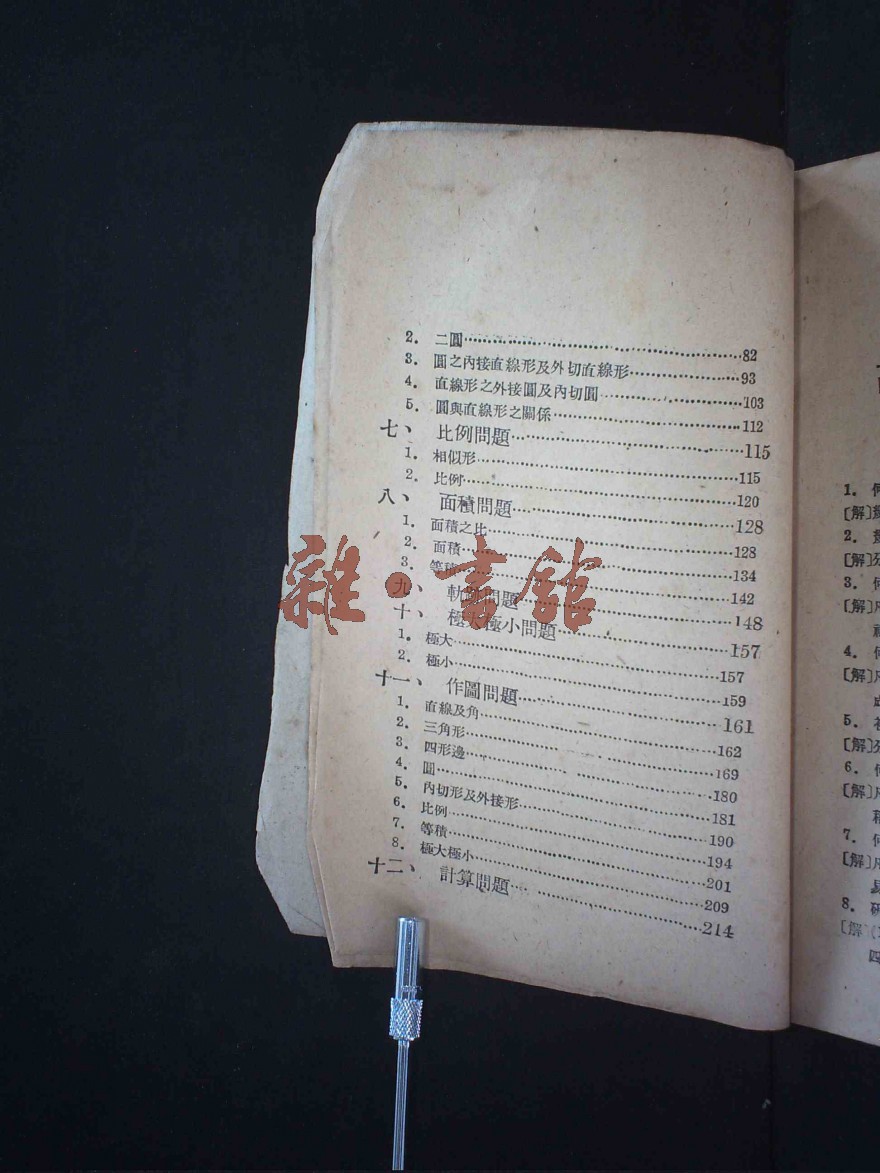 2. 二圓………82
3. 圓之內接直線形及外切直線形………93
4. 直線形之外接圓及內切圓………103
5. 圓與直線形之關係………112
七、 比例問題………115
1. 相似形………115
2. 比例………120
八、 面積問題………128
1. 面積之比………128
2. 面積………134
3. 等積………142
九、 軌跡問題………148
十、 極大極小問題………157
1. 極大………157
2. 極小………159
十一、 作圖問題………161
1. 直線及角………162
2. 三角形………169
3. 四形邊………180
4. 圓………181
5. 內切形及外接形………190
6. 比例………194
7. 等積………201
8. 極大極小………209
十二、 計算問題………214
雜·書館
1.
[解]
2.
[解]
3.
[解]
4.
[解]
5.
[解]
6.
[解]
7.
[解]
8.
[解]